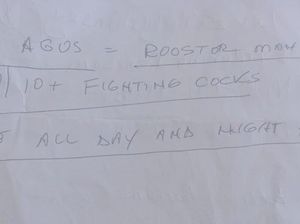 AGOS = ROOSTOR MAN
10+ FIGHTING COCKS
ALL DAY AND NIGHT